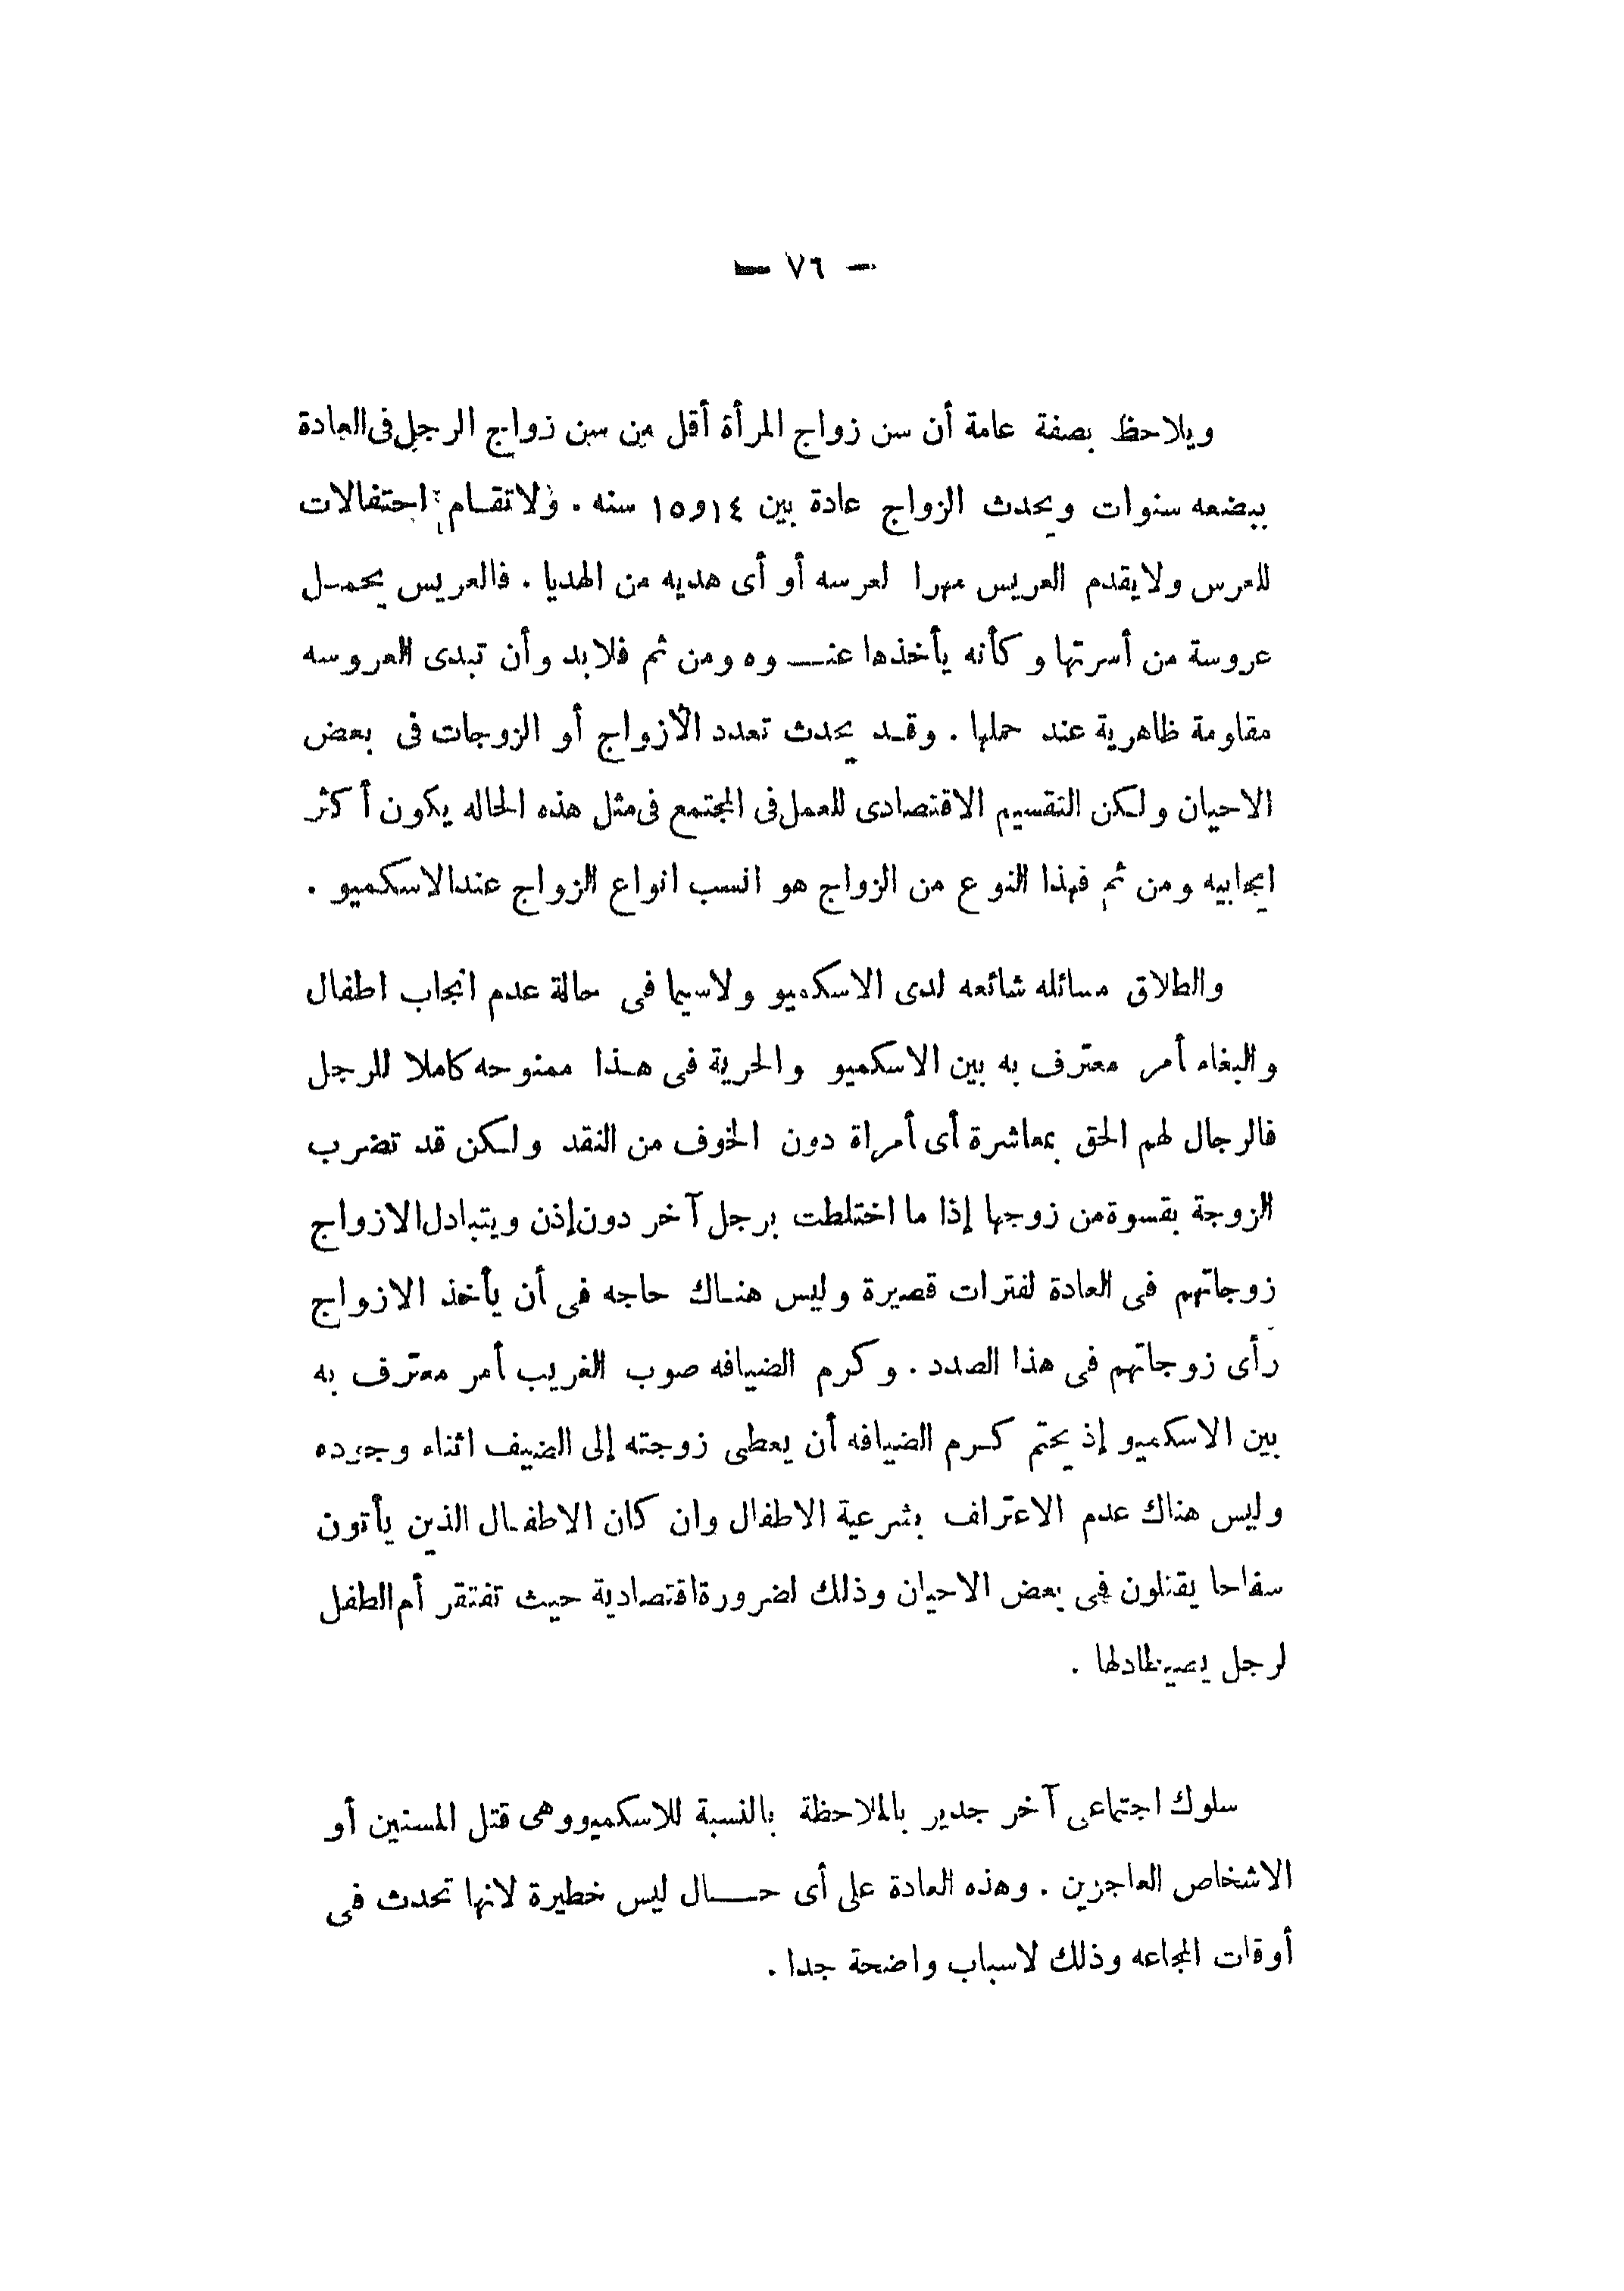 — ٧٦ —
ويلاحظ بصفة عامة أن سن زواج المرأة أقل من سن زواج الرجل فى العادة
ببضعه سنوات ويحدث الزواج عادة بين ١٤و١٥ سنه . ولا تقام احتفالات
للعرس ولا يقدم العريس مهرا لعرسه أو أى هديه من الهديا . فالعريس يحمل
عروسة من أسرتها وكأنه يأخذها عنوه ومن ثم فلابد وأن تبدى العروسه
مقاومة ظاهرية عند حملها . وقد يحدث تعدد الأزواج أو الزوجات فى بعض
الاحيان ولكن التقسيم الاقتصادى للعمل فى المجتمع فى مثل هذه الحاله يكون أكثر
ايجابيه ومن ثم فهذا النوع من الزواج هو انسب انواع الزواج عند الاسكميو .
والطلاق مسائله شائعه لدى الاسكميو ولاسيما فى حالة عدم انجاب اطفال
والبغاء أمر معترف به بين الاسكميو والحرية فى هذا ممنوحه كاملا للرجل
فالرجال لهم الحق بمعاشرة أى أمراة دون الخوف من النقد ولكن قد تضرب
الزوجة بقسوة من زوجها إذا ما اختلطت برجل آخر دون إذن ويتبادل الازواج
زوجاتهم فى العادة لفترات قصيرة وليس هناك حاجه فى أن يأخذ الازواج
رأى زوجاتهم فى هذا الصدد . وكرم الضيافه صوب الغريب أمر معترف به
بين الاسكميو إذ يحتم كرم الضيافه أن يعطى زوجته إلى الضيف اثناء وجوده
وليس هناك عدم الاعتراف بشرعية الاطفال وان كان الاطفال الذين يأتون
سفاحا يقتلون فى بعض الاحيان وذلك لضرورة اقتصادية حيث تفتقر أم الطفل
لرجل يصيظادلها .
سلوك اجتماعى آخر جدير بالملاحظة بالنسبة للاسكميو وهى قتل المسنين أو
الاشخاص العاجزين . وهذه العادة على أى حال ليس خطيرة لانها تحدث فى
أوقات المجاعه وذلك لاسباب واضحة جدا .